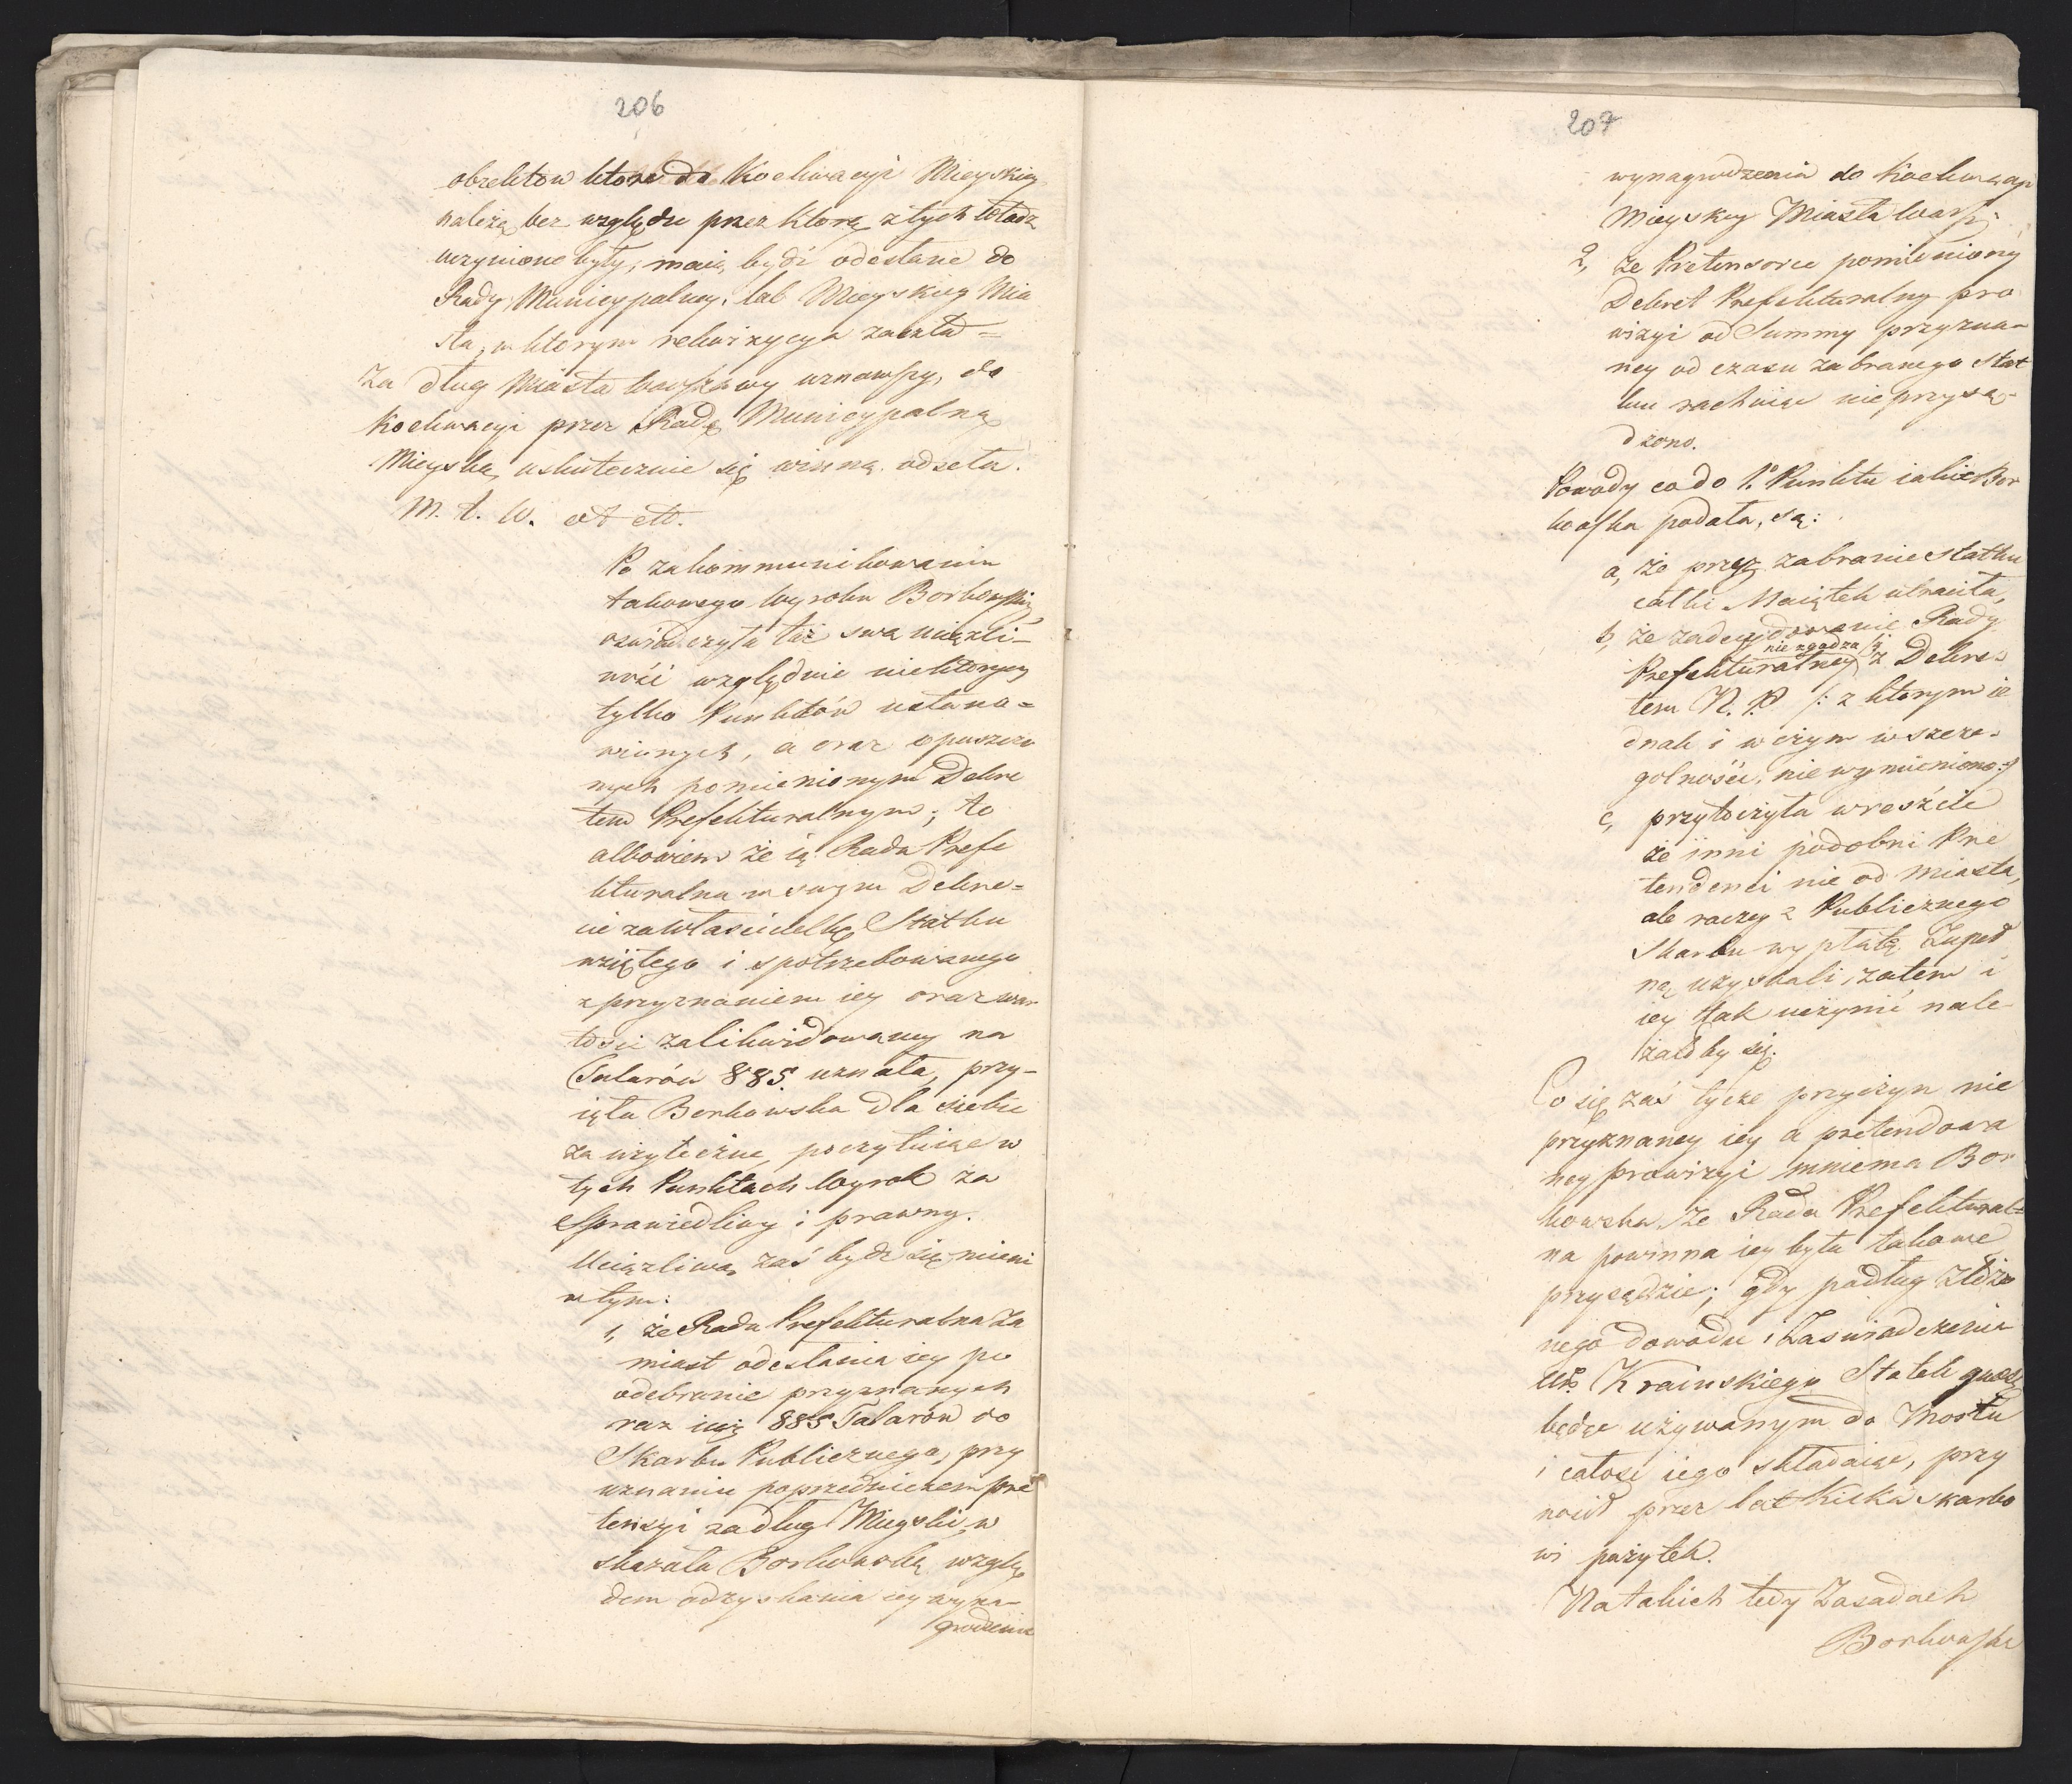 206
obiektow które do Koekwacyi Mieyskiey
należą, bez względu przez którą z tych Władz
uczynione były, maią bydź odesłane do
Rady Municypalney, lub Mieyskiey Mia
sta, w ktorym rekwizycya zaszła =
Za dług Miasta Warszawy uznawszy, do
Koekwacyi przez Radę Municypalną
Mieyską uskutecznić się winną odseła.
M. t. W. et ett.
Po zakommunikowaniu
takowego Wyroku Borkowskiey
oświadczyła taż swą uciążli-
wość względnie niektorych
tylko Punktów ustano=
wionych, a oraz opuszczo
nych pomienionym Dekre
tem Prefekturalnym; to
albowiem że ią Rada Prefe
kturalna w swym Dekre=
cie za Właścicielkę Statku
wziętego i spotrzebowanego
z przyznaniem iey oraz war
tości zalikwidowaney na
Talarów 885. uznała, przy-
ięła Borkowska dla siebie
za użyteczne, poczytuiąc w
tych Punktach Wyrok za
Sprawiedliwy i prawny.
Uciążliwą zaś bydź się mieni
w tym:
1, że Rada Prefekturalna za
miast odesłania iey po
odebranie przyznanych
raz iuż 885 Talarów do
Skarbu Publicznego, przy
uznaniu poprzedniczem pre
tensyi za dług Mieyski, w
skazała Borkowską wzglę
dem odzyskania iey wyna-
grodzenia
207
wynagrodzenia do Koekwacyi
Mieyskiey Miasta Warsz.
2, że Pretensorce pomieniony
Dekret Prefekturalny pro
wizyi od Summy przyzna=
ney od czasu zabranego Stat
ku rachuiąc nie przysą-
dzono.
Powody co do 1º Punktu iakie Bor
kowska podała, są:
a, że przez zabranie Statku
całki Maiątek utraciła,
b, że zadecydowanie Rady
nie zgadza się
Prefekturalney z Dekre=
tem N. P. /: z ktorym ie
dnak i w czym w szcze=
gołności, nie wymieniono :/
c, przytoczyła wreszcie
że inni podobni Pre
tendenci nie od Miasta,
ale raczey z Publicznego
Skarbu wypłatę Zupeł
ną uzyskali, zatem i
iey tak uczynić nale-
żałoby się.
Co się zaś tycze przyczyn nie
przyznaney iey a pretendowa
ney prowizyi mniema Bor
kowska, że Rada Prefektural=
na powinna iey była takowe
przysądzić; gdy podług złożo
nego dowodu, Zaswiadczenia
Ur. Krainskiego Statek quaes.
będąc używanym do Mostu
i całość iego składaiąc, przy
nosił przez lat kilka skarbo
wi pożytek.
Na takich tedy Zasadach
Borkowska